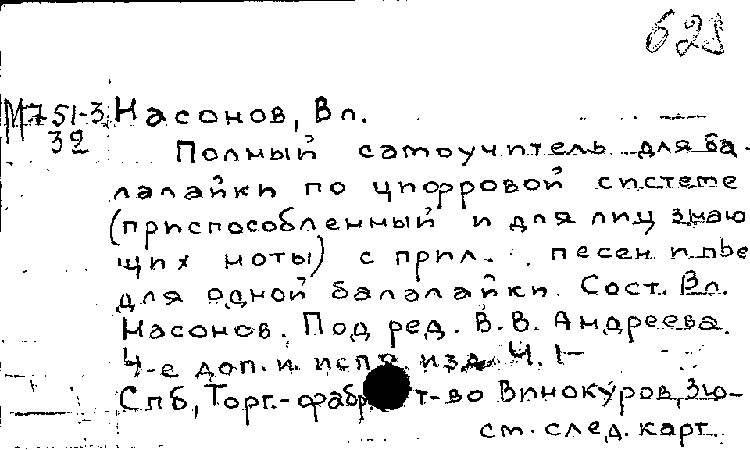 625
М751-3 Насонов, Вл.
32
Полный самоучитель для ба-
лалайки по цифровой системе
(приспособленный и для лиц знаю
щих ноты) с прил. . . песен и пье
для одной балалайки. Сост. Вл.
Насонов. Под ред. В.В. Андреева.
4-е доп. и испр. изд. Ч. 1-
Спб, Торг.-фабр. т-во Винокуров, Зю-
см. след. карт.